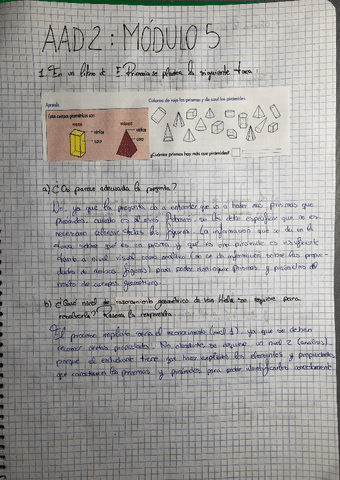 AAD2: MÓDULO 5
1. En un libro de E. Primaria se plantea la siguiente tarea:
Aprende
Estos cuerpos geométricos son:
prismas
pirámides
vértice
cara
vértice
cara
Colorea de rojo los prismas y de azul las pirámides.
¿Cuántos prismas hay más que pirámides?
a) ¿Os parece adecuada la pregunta?
ya que la pregunta da a entender que va a haber más prismas que
pirámides, cuando es al revés. se les debe especificar que no es
necesario colorear todas las figuras. La información que se da en la
tarea sobre qué es un prisma y qué es una pirámide es insuficiente
tanto a nivel visual como analítico (no se da información sobre las propie-
dades de dichas figuras) para poder distinguir prismas y pirámides del
resto de cuerpos geométricos.
b) ¿Qué nivel de razonamiento geométrico de Van Hiele se requiere para
resolverla? Razona la respuesta.
El proceso implícito sería el reconocimiento (nivel 1), ya que se deben
ciertas propiedades. No obstante, se requiere un nivel 2 (análisis),
porque el estudiante tiene que hacer explícitos los elementos y propiedades
que caracterizan los prismas y pirámides para poder identificarlos correctamente.